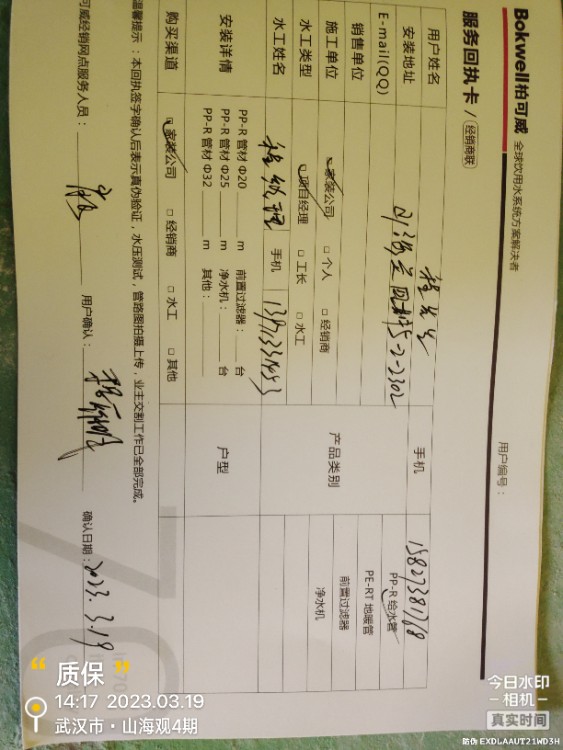 Bokwell柏可威 全球饮用水系统方案解决者
服务回执卡 / 经销商联
用户编号：
用户姓名 程先生 手机 15827381768
安装地址 5-2-2302
E-mail(QQ)
销售单位
施工单位 家装公司 □ 个人 □ 经销商
水工类型 项目经理 □ 工长 □ 水工
水工姓名 程经理 手机
产品类别 PP-R 给水管
PE-RT 地暖管
前置过滤器
净水机
安装详情 PP-R 管材 Φ20 m 前置过滤器： 台
PP-R 管材 Φ25 m 净水机： 台
PP-R 管材 Φ32 m 其他：
户型
购买渠道 家装公司 □ 经销商 □ 水工 □ 其他
温馨提示：本回执签字确认后表示真伪验证，水压测试，管路图拍摄上传，业主交割工作已全部完成。
可威经销网点服务人员： 用户确认： 确认日期：2023.3.19
“ 质保 ”
14:17 2023.03.19
武汉市·山海观4期
今日水印
-相机-
真实时间
防伪 EXDLAAUT21WD3H